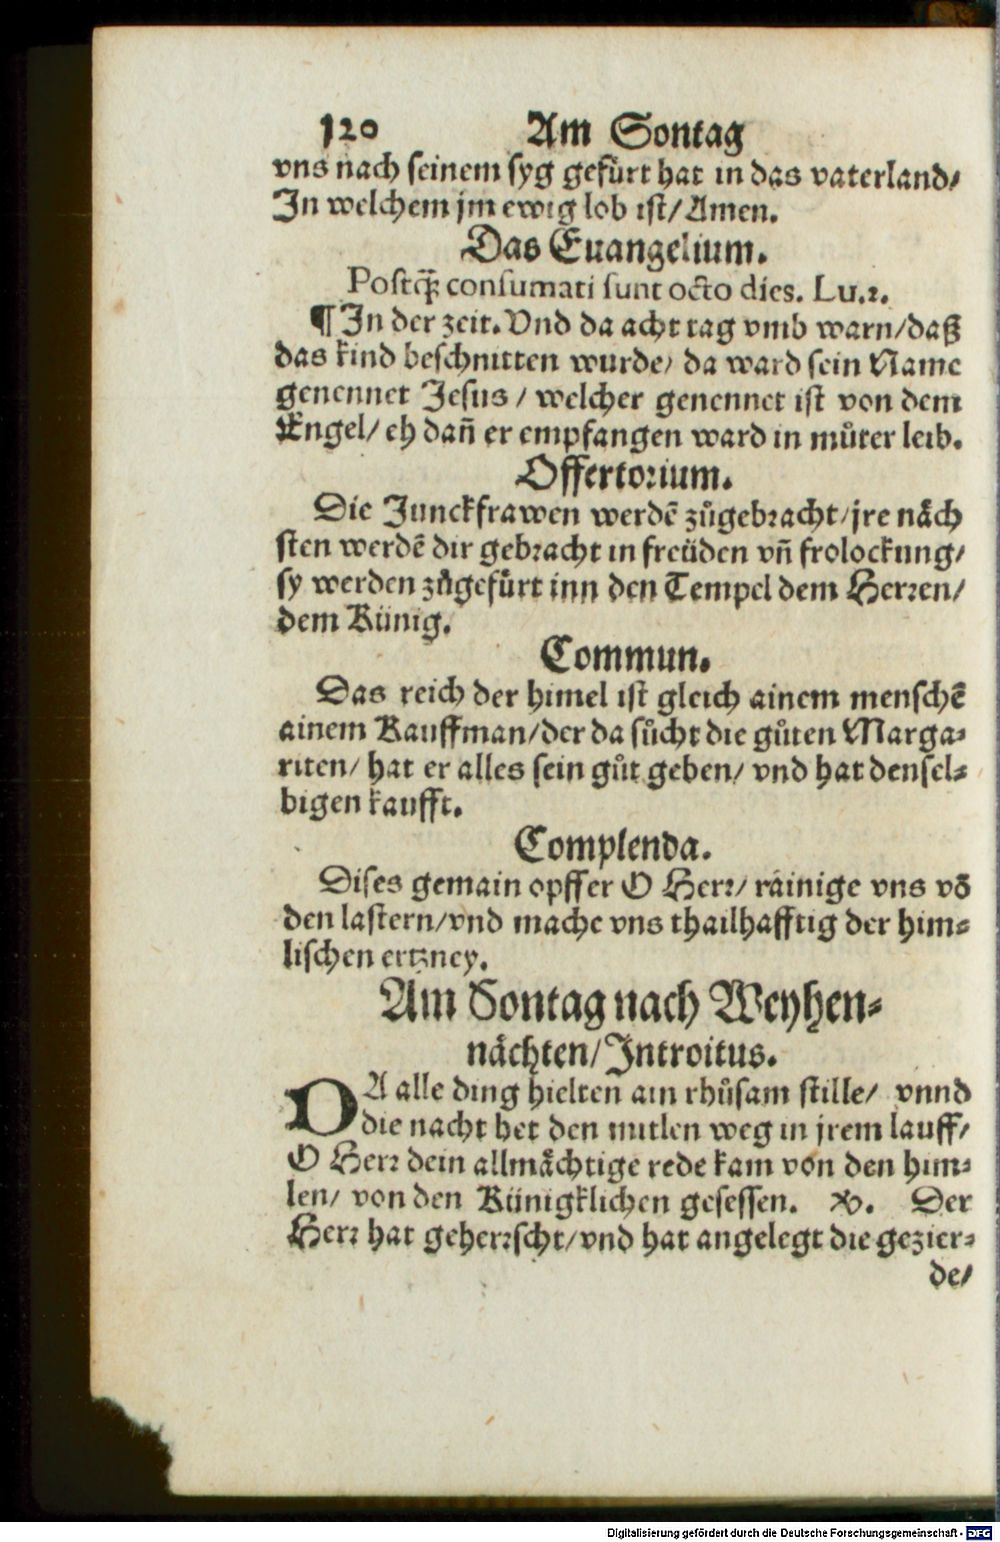 120 Am Sontag
vns nach seinem syg gefürt hat in das vaterland/
In welchem jm ewig lob ist/ Amen.
Das Euangelium.
Postq̃ consumati sunt octo dies. Lu.2.
¶ In der zeit. Vnd da acht tag vmb warn/daß
das kind beschnitten wurde/ da ward sein Name
genennet Jesus / welcher genennet ist von dem
Engel/ eh dañ er empfangen ward in můter leib.
Offertorium.
Die Junckfrawen werdē zůgebracht/jre nåch
sten werdē dir gebracht in freüden vñ frolockung/
sy werden zůgefürt inn den Tempel dem Herren/
dem Künig.
Commun.
Das reich der himel ist gleich ainem menschē
ainem Kauffman/der da sůcht die gůten Marga⸗
riten/ hat er alles sein gůt geben/ vnd hat densel⸗
bigen kaufft.
Complenda.
Dises gemain opffer O Herr/ rainige vns võ
den lastern/vnd mache vns thailhafftig der him⸗
lischen ertzney.
Am Sontag nach Weyhen⸗
nåchten/Introitus.
DA alle ding hielten ain rhůsam stille/ vnnd
die nacht het den mitlen weg in jrem lauff/
O Herr dein allmåchtige rede kam von den him⸗
len/ von den Künigklichen gesessen. V. Der
Herr hat geherrscht/vnd hat angelegt die gezier⸗
de/
Digitalisierung gefördert durch die Deutsche Forschungsgemeinschaft - DFG